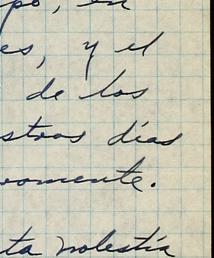 po, en
es, y el
de los
stros días
romente.
ta molestia